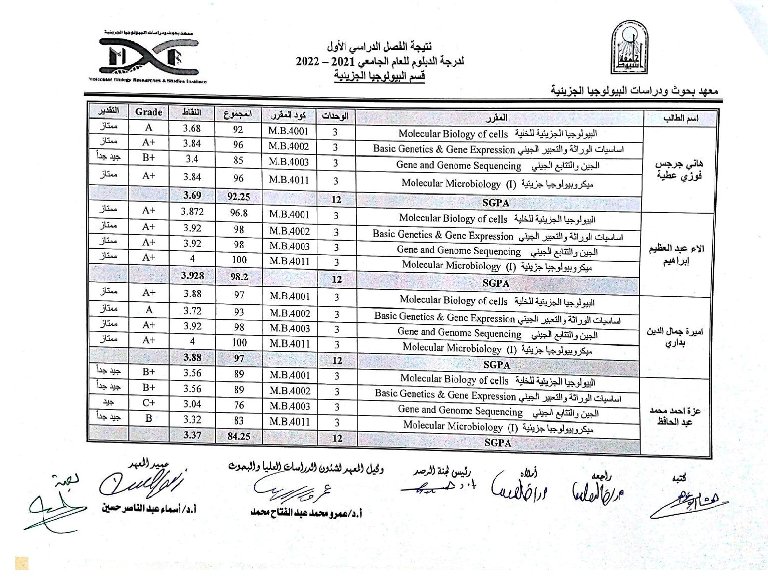 معهد بحوث ودراسات البيولوجيا الجزيئية
Molecular Biology Researches & Studies Institute
نتيجة الفصل الدراسي الأول
لدرجة الدبلوم للعام الجامعي 2021 – 2022
قسم البيولوجيا الجزيئية
معهد بحوث ودراسات البيولوجيا الجزيئية
اسم الطالب المقرر الوحدات كود المقرر المجموع النقاط Grade التقدير
هاني جرجس فوزي عطية
البيولوجيا الجزيئية للخلية Molecular Biology of cells 3 M.B.4001 92 3.68 A ممتاز
اساسيات الوراثة والتعبير الجيني Basic Genetics & Gene Expression 3 M.B.4002 96 3.84 A+ ممتاز
الجين والتتابع الجيني Gene and Genome Sequencing 3 M.B.4003 85 3.4 B+ جيد جداً
ميكروبيولوجيا جزيئية Molecular Microbiology (I) 3 M.B.4011 96 3.84 A+ ممتاز
SGPA 12 92.25 3.69
الاء عبد العظيم إبراهيم
البيولوجيا الجزيئية للخلية Molecular Biology of cells 3 M.B.4001 96.8 3.872 A+ ممتاز
اساسيات الوراثة والتعبير الجيني Basic Genetics & Gene Expression 3 M.B.4002 98 3.92 A+ ممتاز
الجين والتتابع الجيني Gene and Genome Sequencing 3 M.B.4003 98 3.92 A+ ممتاز
ميكروبيولوجيا جزيئية Molecular Microbiology (I) 3 M.B.4011 100 4 A+ ممتاز
SGPA 12 98.2 3.928
اميرة جمال الدين بداري
البيولوجيا الجزيئية للخلية Molecular Biology of cells 3 M.B.4001 97 3.88 A+ ممتاز
اساسيات الوراثة والتعبير الجيني Basic Genetics & Gene Expression 3 M.B.4002 93 3.72 A ممتاز
الجين والتتابع الجيني Gene and Genome Sequencing 3 M.B.4003 98 3.92 A+ ممتاز
ميكروبيولوجيا جزيئية Molecular Microbiology (I) 3 M.B.4011 100 4 A+ ممتاز
SGPA 12 97 3.88
عزة احمد محمد عبد الحافظ
البيولوجيا الجزيئية للخلية Molecular Biology of cells 3 M.B.4001 89 3.56 B+ جيد جداً
اساسيات الوراثة والتعبير الجيني Basic Genetics & Gene Expression 3 M.B.4002 89 3.56 B+ جيد جداً
الجين والتتابع الجيني Gene and Genome Sequencing 3 M.B.4003 76 3.04 C+ جيد
ميكروبيولوجيا جزيئية Molecular Microbiology (I) 3 M.B.4011 83 3.32 B جيد جداً
SGPA 12 84.25 3.37
كتبه راجعه أملاه رئيس لجنة الرصد وكيل المعهد لشئون الدراسات العليا والبحوث عميد المعهد
أ.د/عمرو محمد عبد الفتاح محمد أ.د/ أسماء عبد الناصر حسين